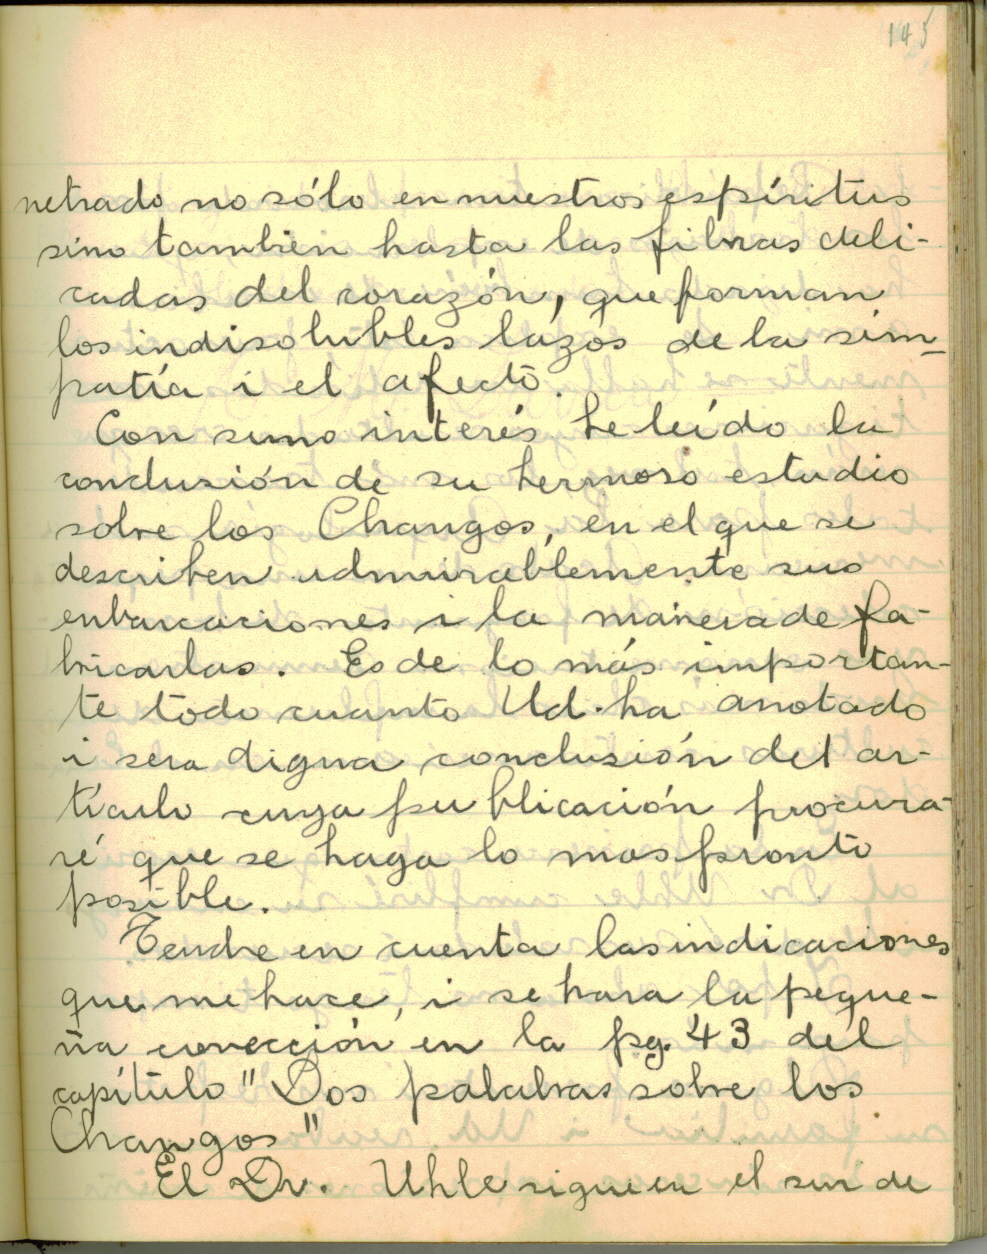 145
netrado no sólo en nuestros espíritus
sino tambien hasta las fibras deli-
cadas del corazón, que forman
los indisolubles lazos de la sim-
patía i el afecto.
Con sumo interés he leído la
conclusión de su hermoso estudio
sobre los Changos, en el que se
describen admirablemente sus
enbarcaciones i la manera de fa-
bricarlas. Es de lo más importan-
te todo cuanto Ud. ha anotado
i sera digna conclusión del ar-
tículo cuya publicación procura-
ré que se haga lo mas pronto
posible.
Tendre en cuenta las indicaciones
que me hace, i se hara la peque-
ña corrección en la pg. 43 del
capítulo "Dos palabras sobre los
Changos"
El Dr. Uhle sigue en el sur de